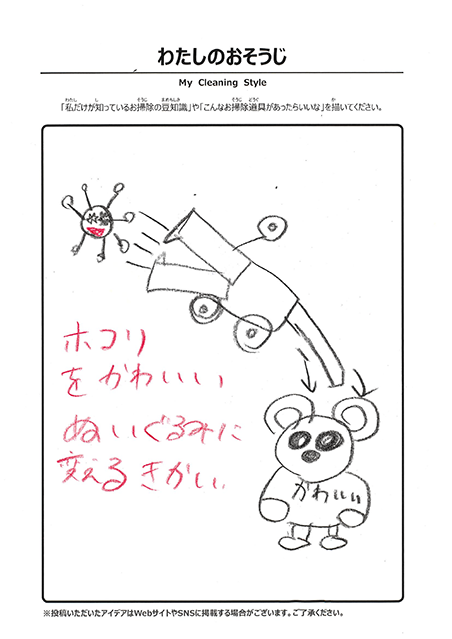 わたしのおそうじ
My Cleaning Style
「私だけが知っているお掃除の豆知識」や「こんなお掃除道具があったらいいな」を描いてください。
ホコリ
をかわいい
ぬいぐるみに
変えるきかい
かわいい
※投稿いただいたアイデアはWebサイトやSNSに掲載する場合がございます。ご了承ください。